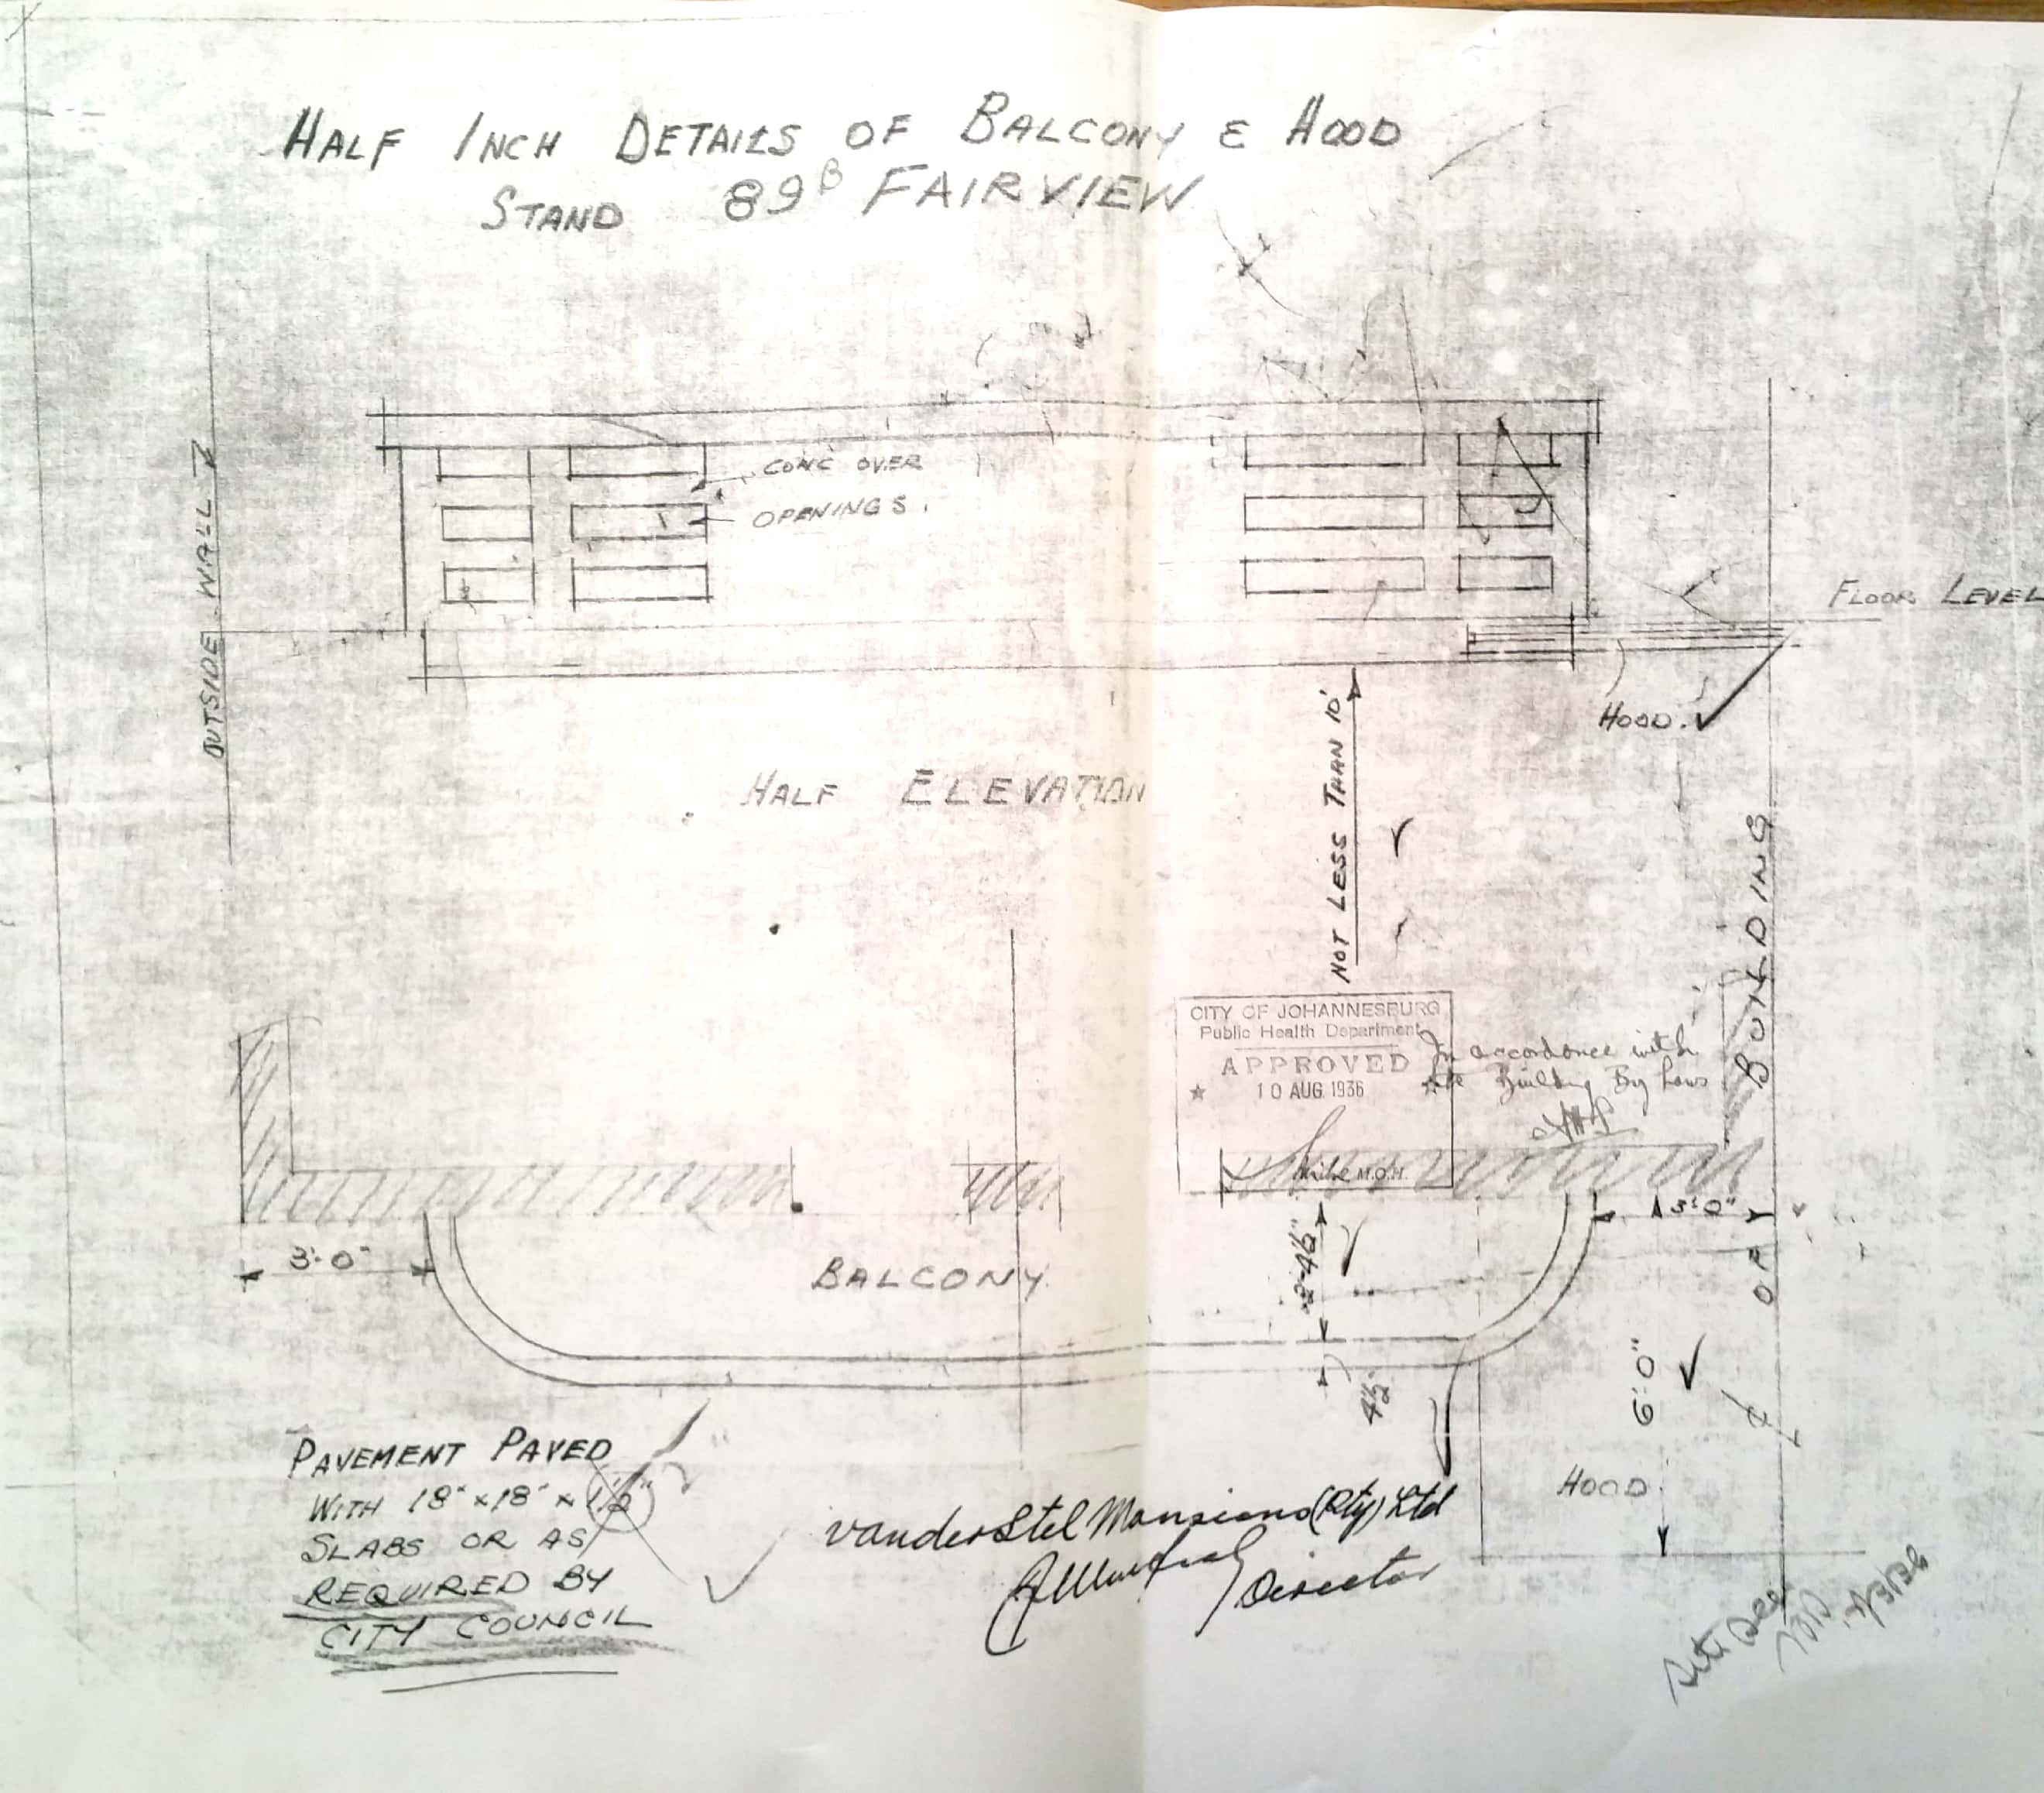 HALF INCH DETAILS OF BALCONY & HOOD
STAND 89B FAIRVIEW
OUTSIDE WALL
CONC OVER
OPENINGS.
FLOOR LEVEL
HOOD.
NOT LESS THAN 10'
HALF ELEVATION
CITY OF JOHANNESBURG
Public Health Department
APPROVED
10 AUG 1936
M.O.H.
In accordance with
the Building By Laws
BUILDING
OF
3'-0"
3'-0"
BALCONY
2'-4½"
4½"
6'-0"
HOOD.
PAVEMENT PAVED
WITH 18" × 18" × 1½"
SLABS OR AS
REQUIRED BY
CITY COUNCIL
Van der Stel Mansions (Pty) Ltd
Director